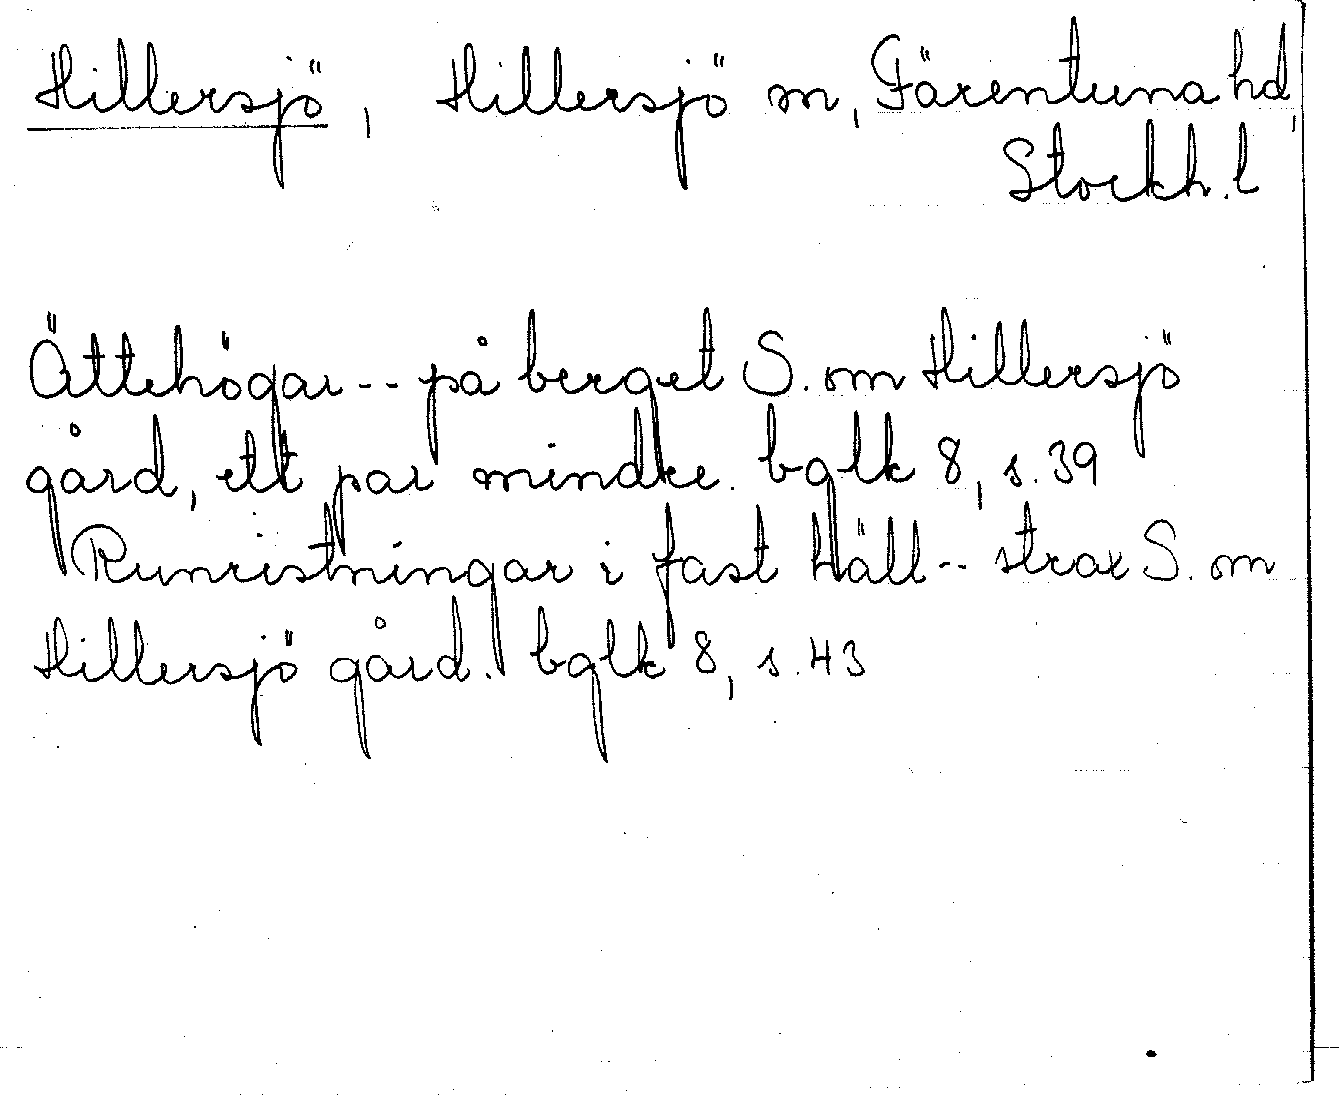 Hillersjö, Hillersjö sn, Färentuna hd,
Stockh. l
Ättehögar -- på berget S. om Hillersjö
gård, ett par mindre. bglk 8, s. 39
Runristningar i fast häll -- strax S. om
Hillersjö gård. bglk 8, s. 43